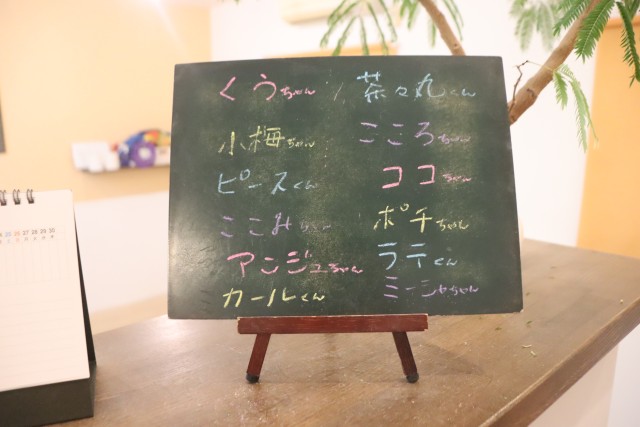 くうちゃん / 茶々丸くん
小梅ちゃん こころちゃん
ピースくん ココちゃん
ここみちゃん ポチちゃん
アンジュちゃん ラテくん
カールくん ミーシャちゃん
25 26 27 28 29 30